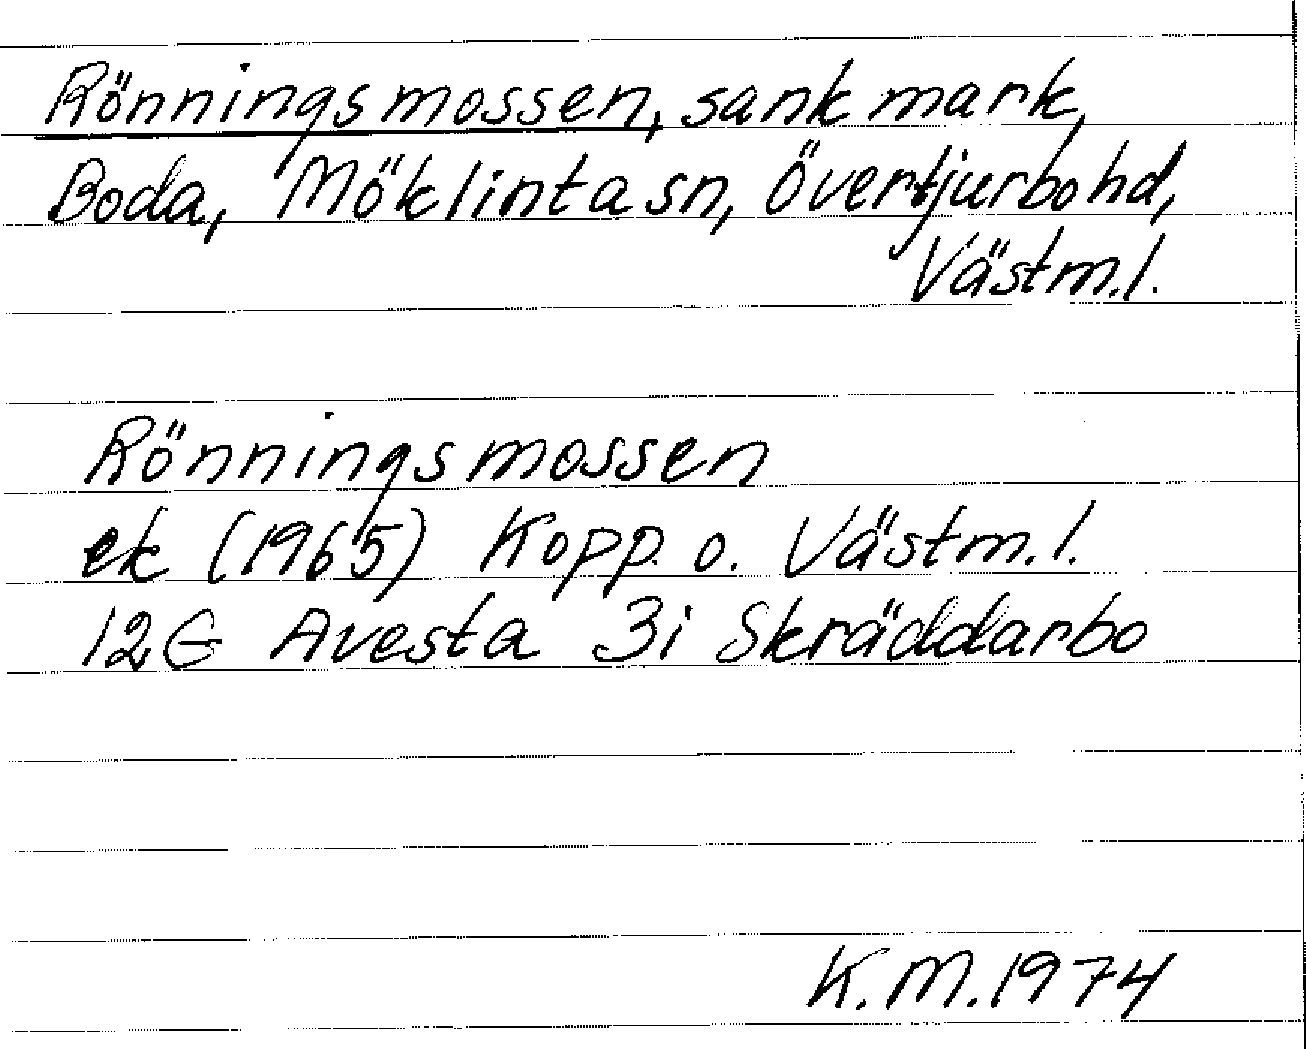 Rönningsmossen, sank mark,
Boda, Möklinta sn, Övertjurbo hd,
Västm.l.
Rönningsmossen
ek (1965) Kopp. o. Västm.l.
12G Avesta 3i Skräddarbo
K.M.1974